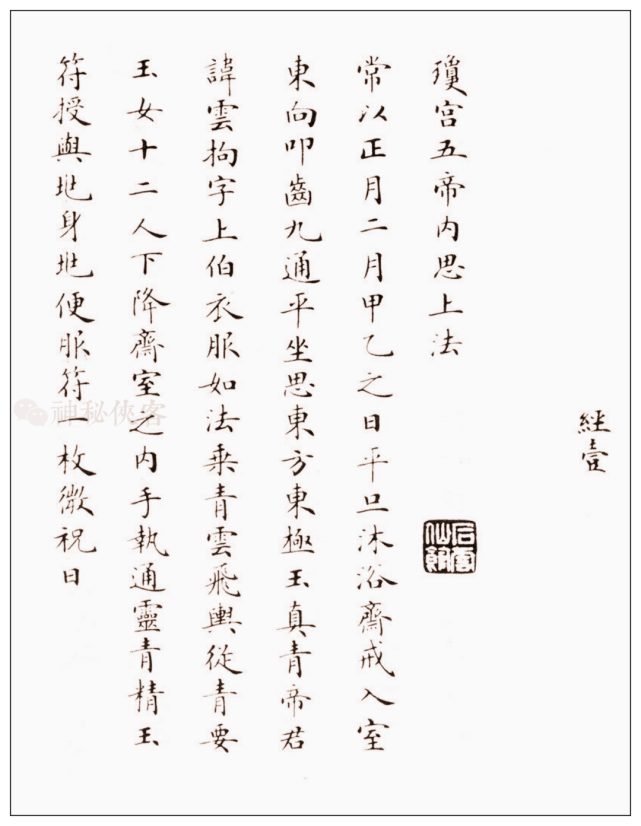 經壹
瓊宮五帝內思上法
常以正月二月甲乙之日平旦沐浴齋戒入室
東向叩齒九通平坐思東方東極玉真青帝君
諱雲拘字上伯衣服如法乗青雲飛輿從青要
玉女十二人下降齋室之内手執通靈青精玉
符授與兆身兆便服符一枚微祝曰
神秘俠客